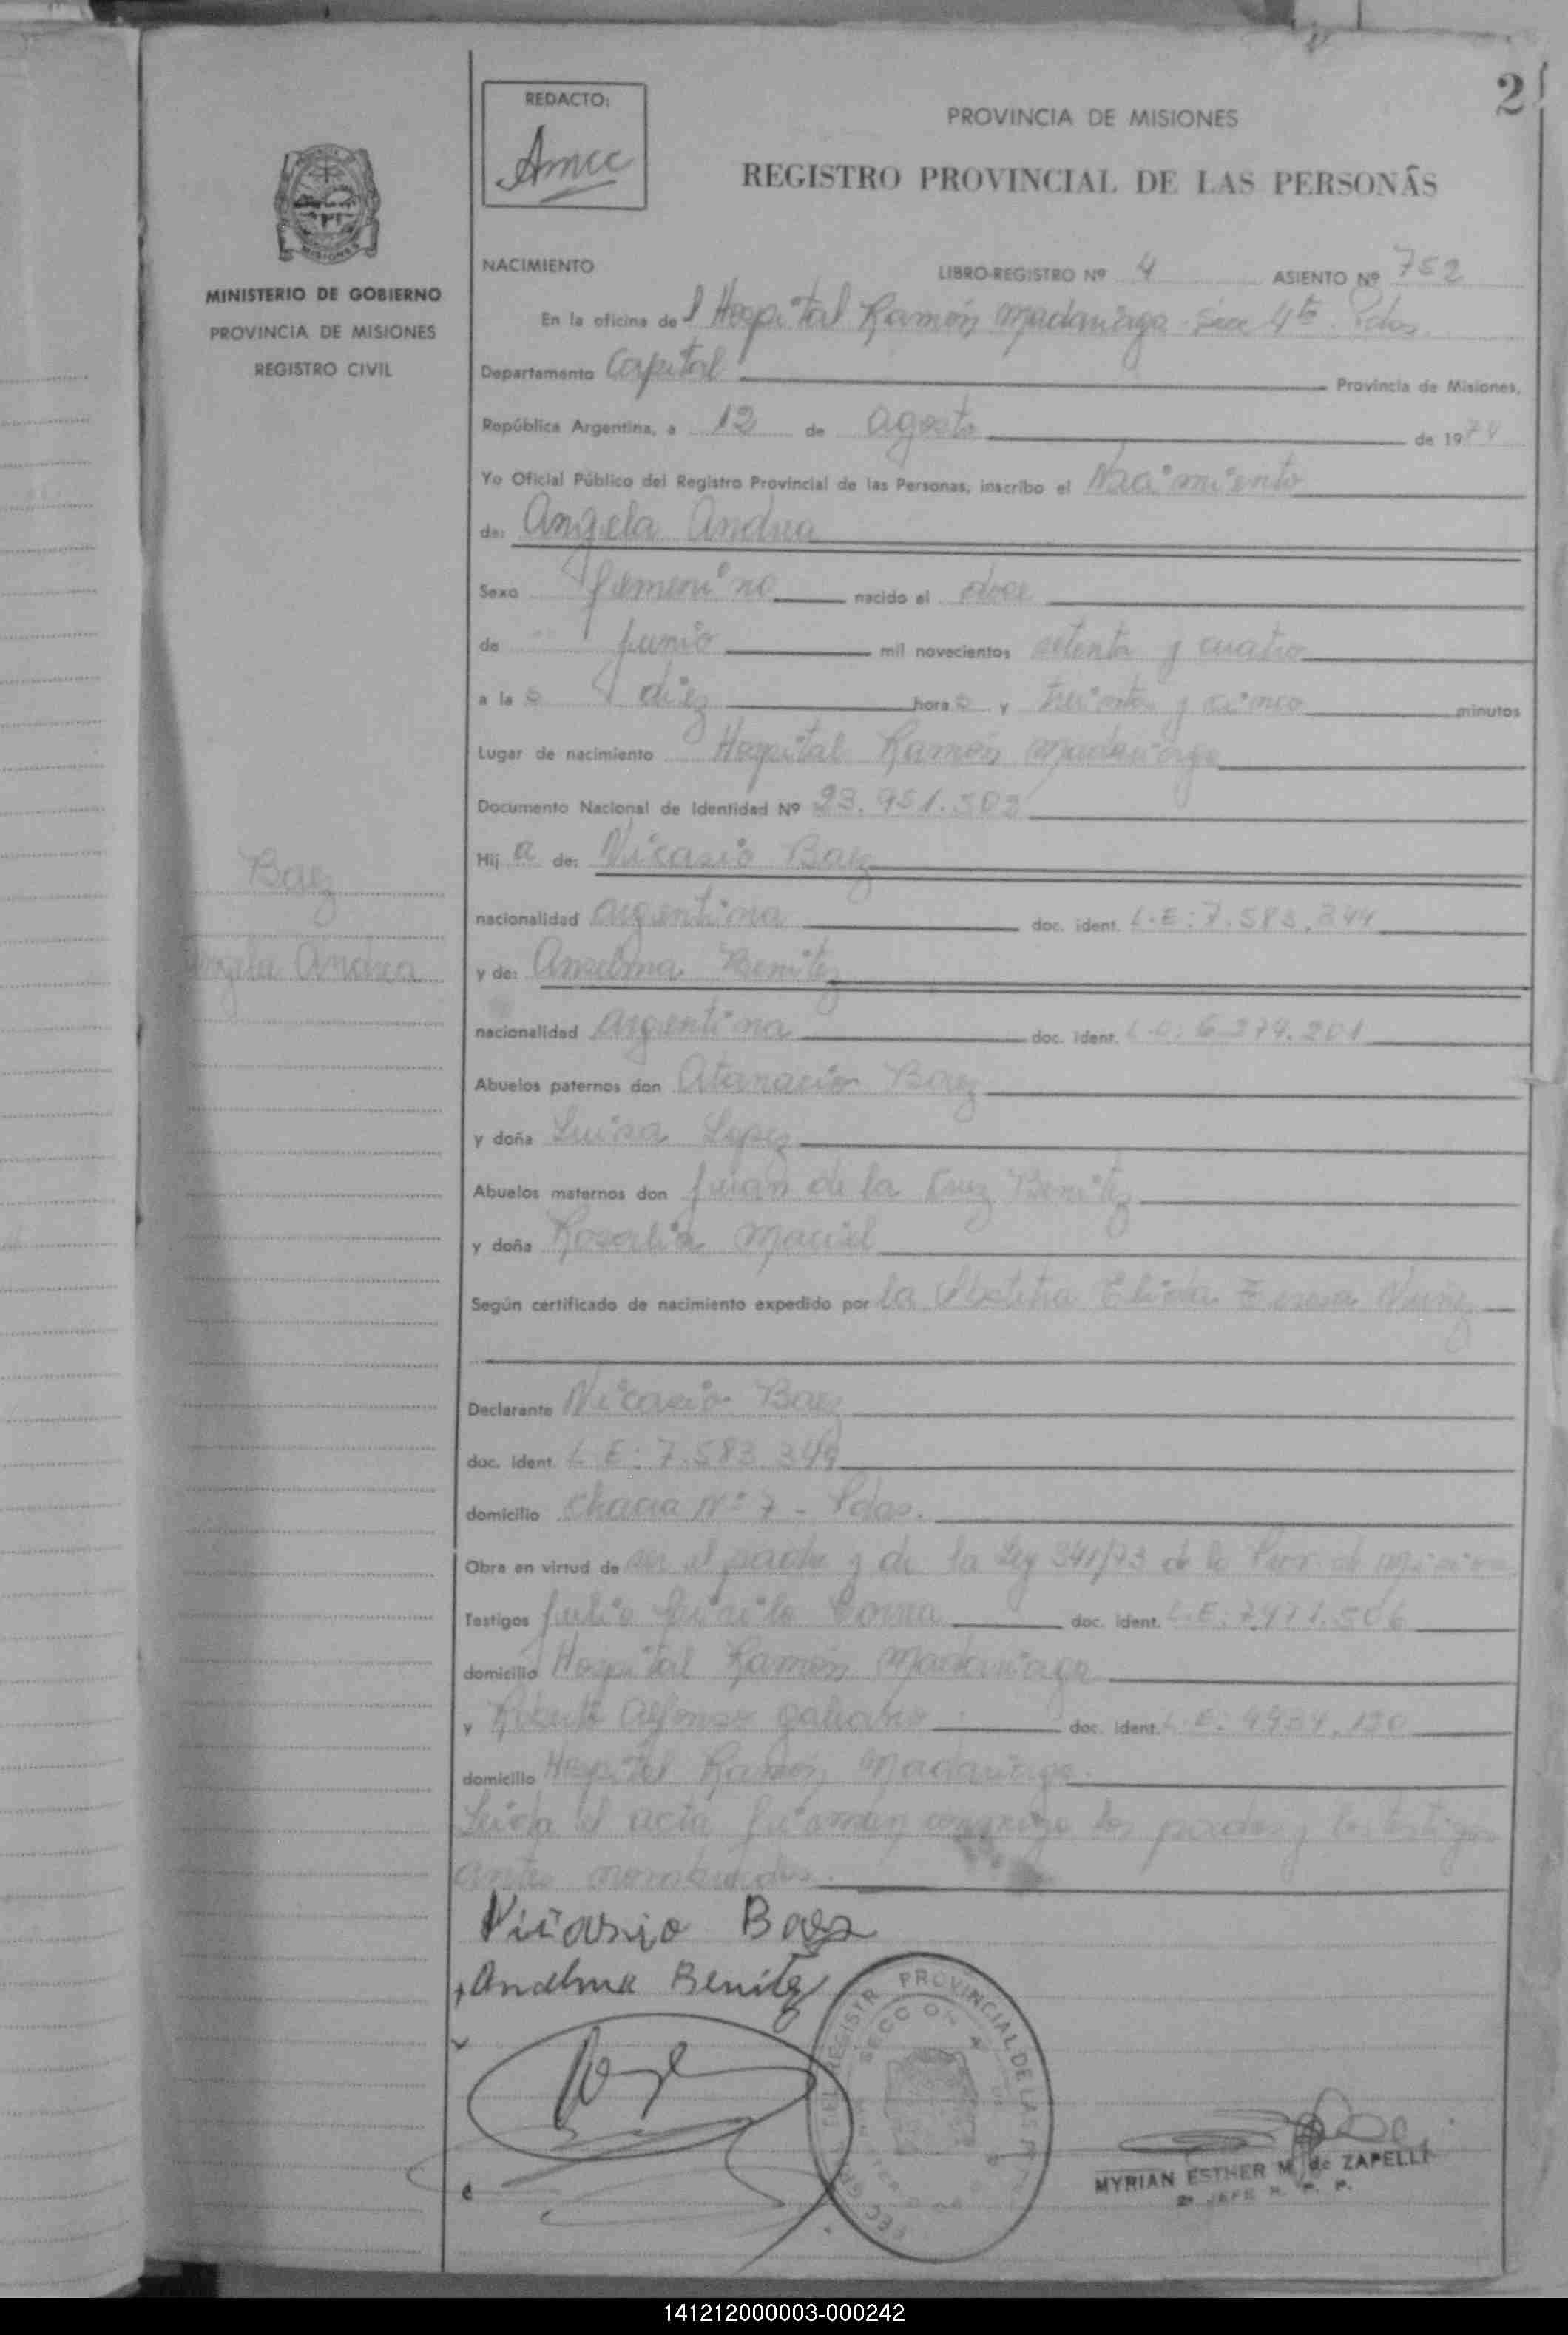 2
REDACTO:
Amcc
PROVINCIA DE MISIONES
REGISTRO PROVINCIAL DE LAS PERSONAS
MISIONES
MINISTERIO DE GOBIERNO
PROVINCIA DE MISIONES
REGISTRO CIVIL
NACIMIENTO LIBRO-REGISTRO Nº 4 ASIENTO Nº 752
En la oficina del Hospital Ramón Madariaga - Sec 4ta Pdas.
Departamento Capital Provincia de Misiones,
República Argentina, a 12 de agosto de 1974
Yo Oficial Público del Registro Provincial de las Personas, inscribo el Nacimiento
de: Angela Andrea
Sexo femenino nacido el doce
de junio mil novecientos setenta y cuatro
a las diez horas y treinta y cinco minutos
Lugar de nacimiento Hospital Ramón Madariaga
Documento Nacional de Identidad Nº 23.951.503
Hija de: Nicasio Baez
Baez
nacionalidad argentina doc. ident. L.E: 7.583.344
Angela Andrea
y de: Anselma Benitez
nacionalidad argentina doc. ident. L.C: 6.274.201
Abuelos paternos don Atanacio Baez
y doña Luisa Lopez
Abuelos maternos don Juan de la Cruz Benitez
y doña Rosalia Maciel
Según certificado de nacimiento expedido por la Obstetra Elida Teresa Nuñez
Declarante Nicasio Baez
doc. ident. L.E: 7.583.344
domicilio Chacra Nº 7 - Pdas.
Obra en virtud de ser el padre y de la Ley 341/73 de la Prov. de Misiones
Testigos Julio doc. ident. L.E: 7.471.506
domicilio Hospital Ramón Madariaga
y Roberto Alfonso Galeano doc. ident. L.E: 4.954.120
domicilio Hospital Ramón Madariaga.
Leida el acta firman conmigo los padres y los testigos
antes nombrados.
Nicasio Baez
Anselma Benitez
REGISTR. PROVINCIAL DE LAS
SECCION 4
MYRIAN ESTHER M. de ZAPELLI
2º JEFE R. P. P.
141212000003-000242